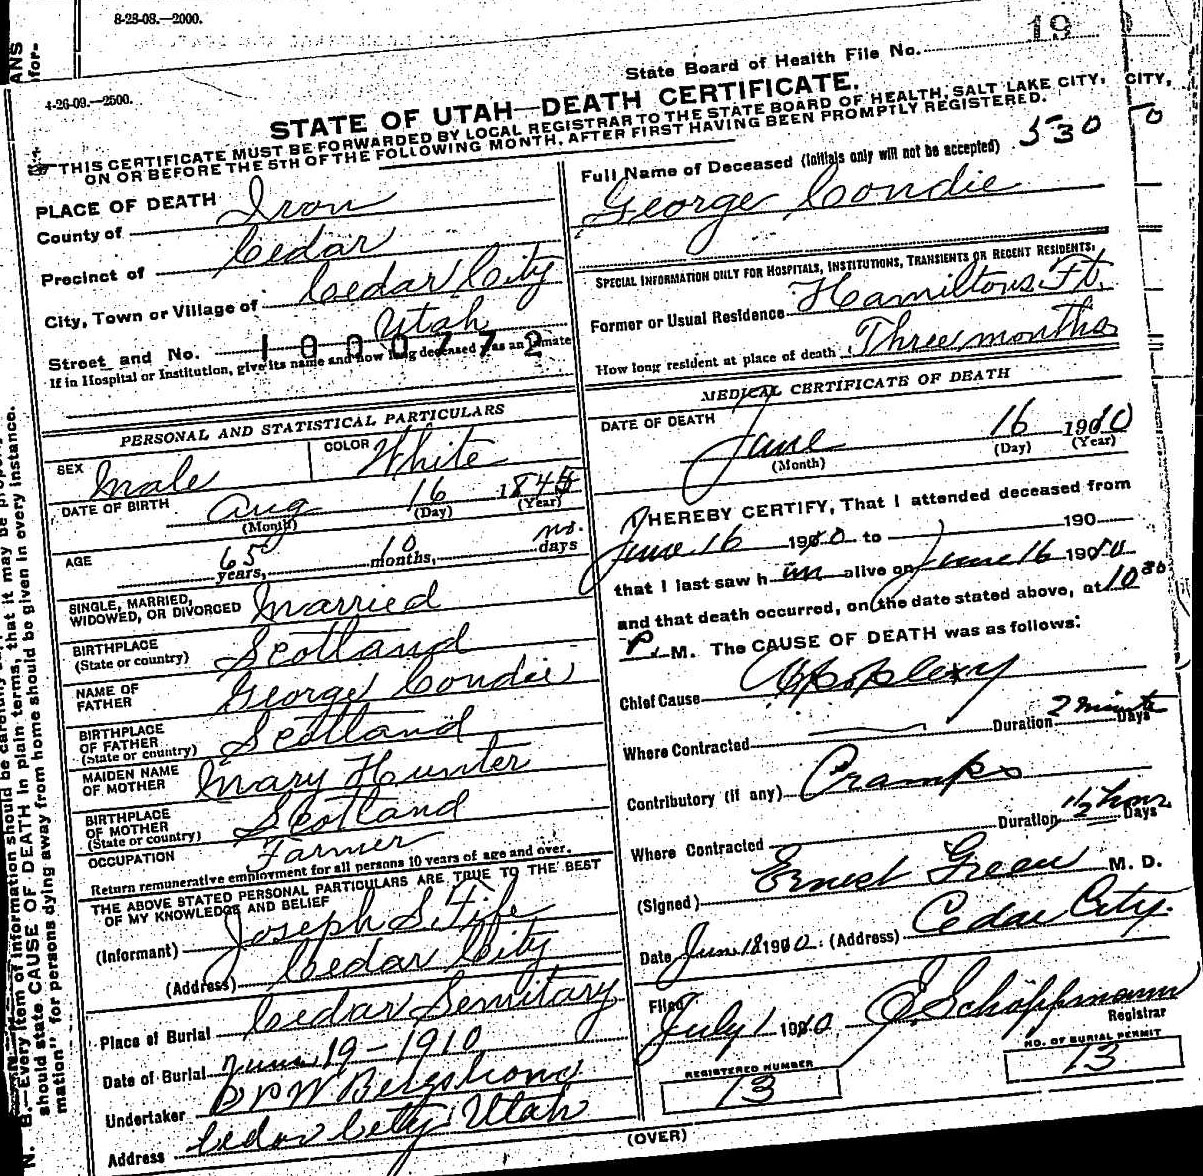 8-28-08.—2000.
19
State Board of Health File No.
4-26-09.—2500.
STATE OF UTAH—DEATH CERTIFICATE.
THIS CERTIFICATE MUST BE FORWARDED BY LOCAL REGISTRAR TO THE STATE BOARD OF HEALTH, SALT LAKE CITY,
CITY,
ON OR BEFORE THE 5TH OF THE FOLLOWING MONTH, AFTER FIRST HAVING BEEN PROMPTLY REGISTERED.
530
0
PLACE OF DEATH
County of Iron
Precinct of Cedar
City, Town or Village of Cedar City
Utah
Street and No.
1000772
If in Hospital or Institution, give its name and how long deceased was an inmate
PERSONAL AND STATISTICAL PARTICULARS
SEX Male COLOR White
DATE OF BIRTH Aug 16 1845
(Month) (Day) (Year)
AGE 65 years, 10 months, no. days
SINGLE, MARRIED, WIDOWED, OR DIVORCED Married
BIRTHPLACE (State or country) Scotland
NAME OF FATHER George Condie
BIRTHPLACE OF FATHER (State or country) Scotland
MAIDEN NAME OF MOTHER Mary Hunter
BIRTHPLACE OF MOTHER (State or country) Scotland
OCCUPATION Farmer
Return remunerative employment for all persons 10 years of age and over.
THE ABOVE STATED PERSONAL PARTICULARS ARE TRUE TO THE BEST
OF MY KNOWLEDGE AND BELIEF
(Informant) Joseph S. Fife
(Address) Cedar City
Place of Burial Cedar Semitary
Date of Burial June 19-1910
Undertaker
Address Cedar City Utah
Full Name of Deceased (Initials only will not be accepted)
George Condie
SPECIAL INFORMATION ONLY FOR HOSPITALS, INSTITUTIONS, TRANSIENTS OR RECENT RESIDENTS.
Former or Usual Residence Hamiltons Ft.
How long resident at place of death Three months
MEDICAL CERTIFICATE OF DEATH
DATE OF DEATH
June 16 1910
(Month) (Day) (Year)
I HEREBY CERTIFY, That I attended deceased from
June 16 1910 to 190
that I last saw him alive on June 16 1910
and that death occurred, on the date stated above, at 10 30
P. M. The CAUSE OF DEATH was as follows:
Chief Cause Apoplexy
Duration 2 minute Days
Where Contracted
Contributory (if any) Cramps
Duration 1/2 hour Days
Where Contracted
(Signed) Ernest Green M. D.
Date Jun. 18 1910. (Address) Cedar City.
Filed
July 1 1910
Registrar
REGISTERED NUMBER
13
NO. OF BURIAL PERMIT
13
(OVER)
N. B.—Every item of information should be carefully
should state CAUSE OF DEATH in plain terms, that it may be
mation" for persons dying away from home should be given in every instance.